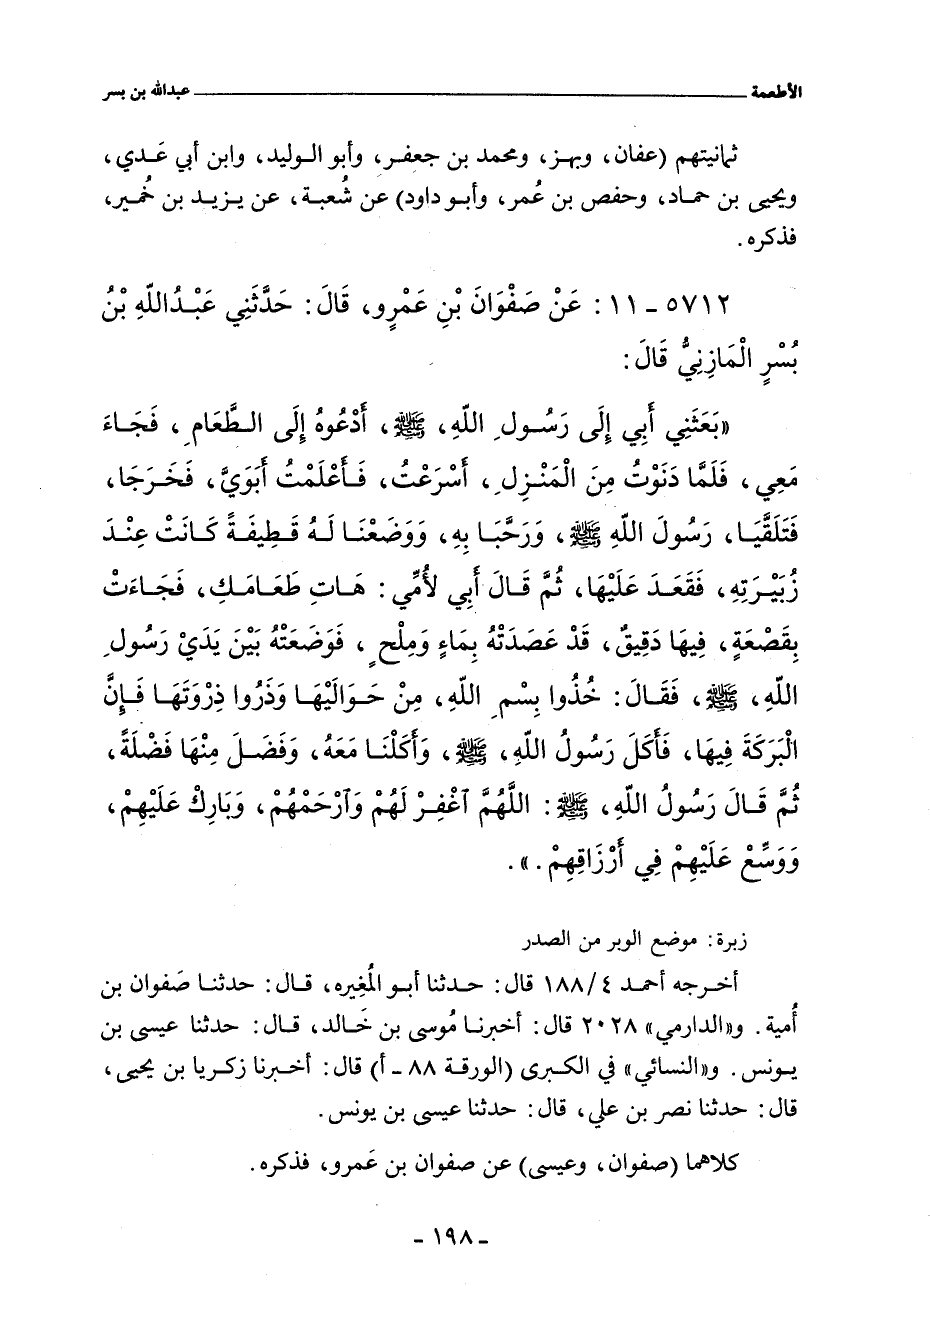 الأطعمة ــــــ عبدالله بن بسر
ثمانيتهم (عفان، وبهز، ومحمد بن جعفر، وأبو الوليد، وابن أبي عَدي،
ويحيى بن حماد، وحفص بن عُمر، وأبو داود) عن شُعبة، عن يزيد بن خُمير،
فذكره.
٥٧١٢ - ١١ : عَنْ صَفْوَانَ بْنِ عَمْرٍو، قَالَ: حَدَّثَنِي عَبْدُاللّهِ بْنُ
بُسْرٍ الْمَازِنِيُّ قَالَ:
«بَعَثَنِي أَبِي إِلَى رَسُولِ اللّهِ، ﷺ، أَدْعُوهُ إِلَى الطَّعَامِ، فَجَاءَ
مَعِي، فَلَمَّا دَنَوْتُ مِنَ الْمَنْزِلِ، أَسْرَعْتُ، فَأَعْلَمْتُ أَبَوَيَّ، فَخَرَجَا،
فَتَلَقَّيَا، رَسُولَ اللّهِ ﷺ، وَرَحَّبَا بِهِ، وَوَضَعْنَا لَهُ قَطِيفَةً كَانَتْ عِنْدَ
زُبَيْرَتِهِ، فَقَعَدَ عَلَيْهَا، ثُمَّ قَالَ أَبِي لأُمِّي: هَاتِ طَعَامَكِ، فَجَاءَتْ
بِقَصْعَةٍ، فِيهَا دَقِيقٌ، قَدْ عَصَدَتْهُ بِمَاءٍ وَمِلْحٍ، فَوَضَعَتْهُ بَيْنَ يَدَيْ رَسُولِ
اللّهِ، ﷺ، فَقَالَ: خُذُوا بِسْمِ اللّهِ، مِنْ حَوَالَيْهَا وَذَرُوا ذِرْوَتَهَا فَإِنَّ
الْبَرَكَةَ فِيهَا، فَأَكَلَ رَسُولُ اللّهِ، ﷺ، وَأَكَلْنَا مَعَهُ، وَفَضَلَ مِنْهَا فَضْلَةً،
ثُمَّ قَالَ رَسُولُ اللّهِ، ﷺ: اللَّهُمَّ ٱغْفِرْ لَهُمْ وَٱرْحَمْهُمْ، وَبَارِكْ عَلَيْهِمْ،
وَوَسِّعْ عَلَيْهِمْ فِي أَرْزَاقِهِمْ.».
زبرة: موضع الوبر من الصدر
أخرجه أحمد ٤/ ١٨٨ قال: حدثنا أبو المُغِيره، قال: حدثنا صَفوان بن
أُمية. و«الدارمي» ٢٠٢٨ قال: أخبرنا مُوسى بن خَالد، قال: حدثنا عيسى بن
يونس. و«النسائي» في الكبرى (الورقة ٨٨ - أ) قال: أخبرنا زكريا بن يحيى،
قال: حدثنا نصر بن علي، قال: حدثنا عيسى بن يونس.
كلاهما (صفوان، وعيسى) عن صفوان بن عَمرو، فذكره.
- ١٩٨ -